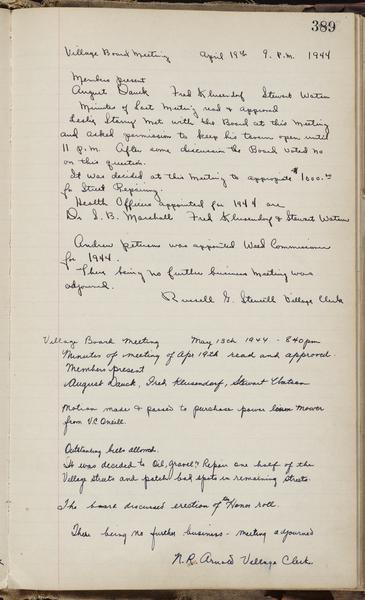 389
Village Board Meeting April 19th 9. P.M. 1944
Members present
August Dauck Fred Klusendorf Stewart Watson
Minutes of last meeting read & approved
Leslie met with the Board at this meeting
and asked permission to keep his tavern open until
11 p.m. After some discussion the Board voted no
on this question.
It was decided at this meeting to appropriate $1000.00
for Street Repairing.
Health Officers appointed for 1944 are
Dr. I. B. Marshall Fred Klusendorf & Stewart Watson
Andrew Petersen was appointed Weed Commissioner
for 1944.
There being no further business meeting was
adjourned.
Russell G. Village Clerk
Village Board Meeting May 13th 1944 - 840 pm
Minutes of meeting of Apr 19th read and approved.
Members present
August Dauck, Fred Klusendorf, Stewart Watson
Motion made & passed to purchase power Mower
from V.C. Oneill.
Outstanding bills allowed.
It was decided to Oil, Gravel & Repair one half of the
Village Streets and patch bad spots in remaining streets.
The board discussed erection of the Honor roll.
There being no further business - meeting adjourned
N.R. Arnold Village Clerk